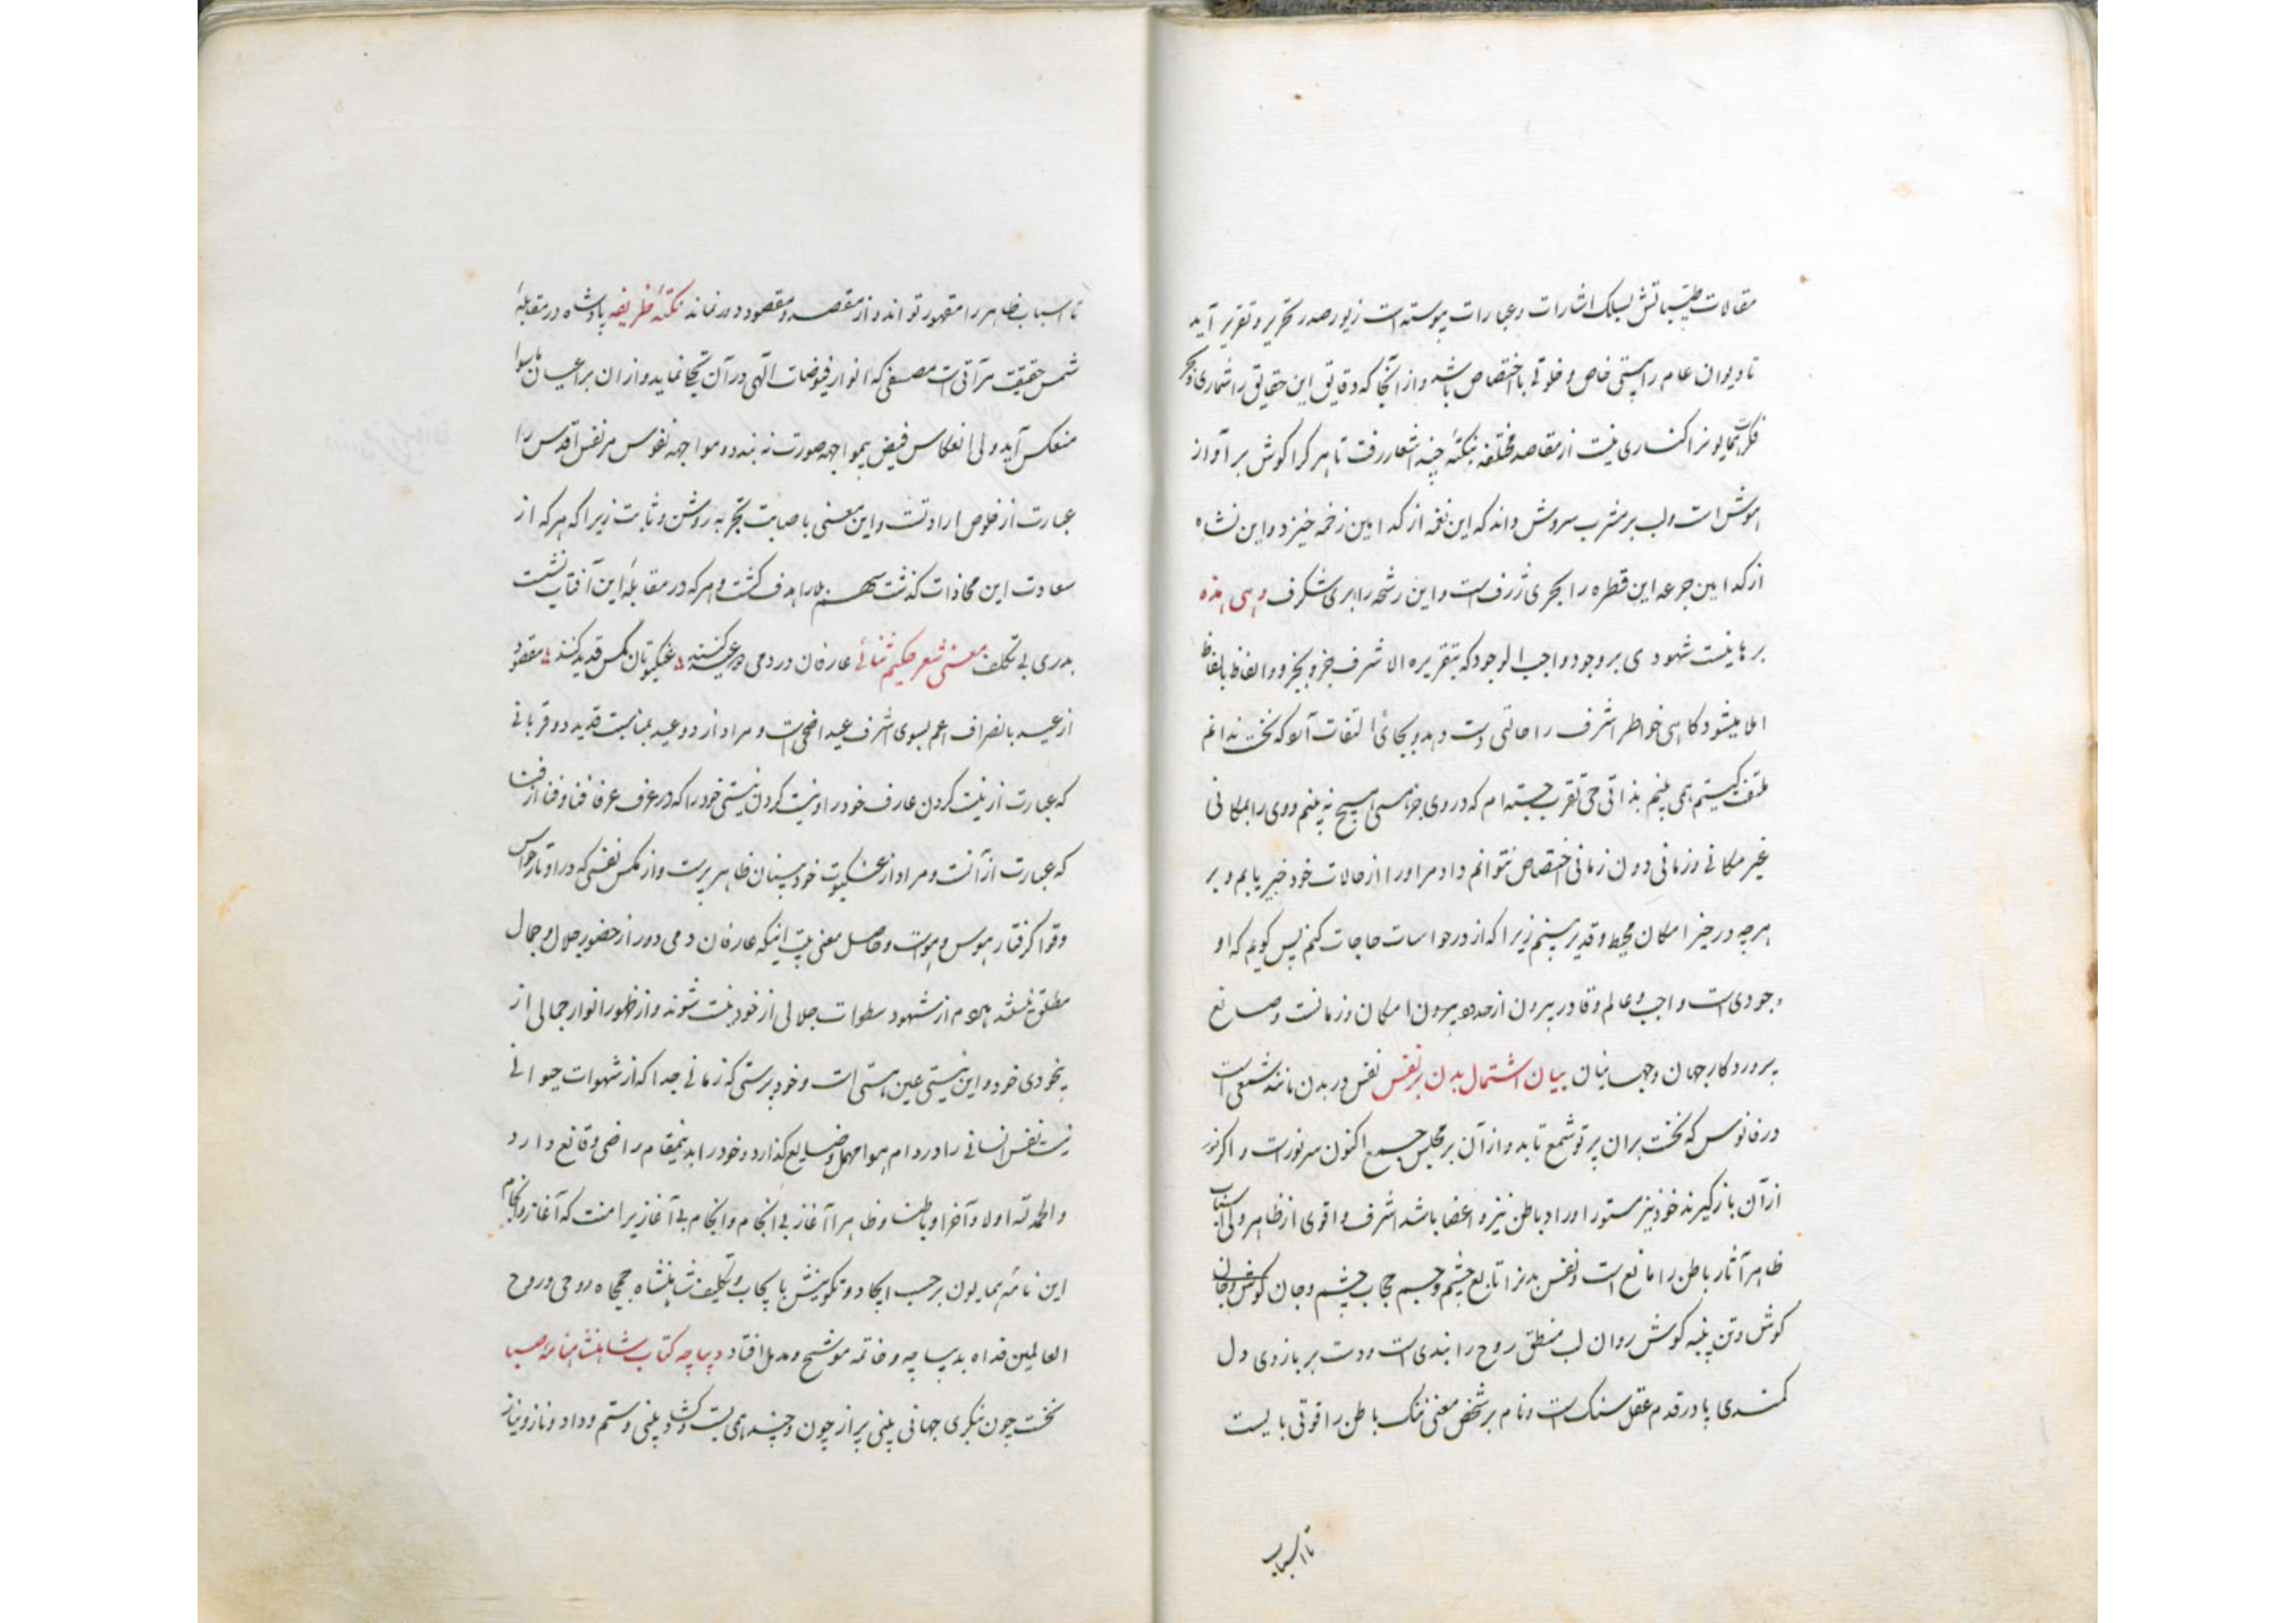 مقالات طیّباتش بسلک اشارات و عبارات پیوسته است زیور صدر تحریر و تقریر آید
تا دیوان عام راستی خاص و خلوتی با اختصاص باشد و از آنجا که دقایق این حقایق را شماری و بحر
فکرت همایونرا کناری نیست از مقاصد مختلفه بنکتهٔ چند اشعار رفت تا هر کرا کوش بر آواز
هوش است و لب بر مشرب سروش داند که این نغمه از کدامین زخمه خیزد و این نشاه
از کدامین جرعه این قطره را بحری ژرف است و این رشحه را ابری شکرف و هی هذه
برهانیست شهودی بر وجود واجب الوجود که بتقریره الاشرف جزو بجزو و الفاظ بالفاظ
املا میشود کاهی خواطر اشرف را حالتی دست دهد و بجائی التفات آرد که نخست ندانم
ملتفت کیستم همی بینم بذاتی حی تقرب جسته ام که در وی جز هستی هیچ نه بینم و وی را بمکانی
غیر مکانی و زمانی دون زمانی اختصاص نتوانم داد مر او را از حالات خود خبیر یابم و بر
هر چه در حیز امکان محیط و قدیر بینم زیرا که از در خواسات حاجات کنم پس کویم که او
وجودی است واجب و عالم و قادر بیرون از حد و بیرون امکان و زمانست و صانع
پروردکار جهان و جهانیان بیان اشتمال بدن بر نفس نفس در بدن مانند شمعی است
در فانوس که نخست بران پرتو شمع تابد و از آن بر مجلس جمع اکنون سر نور است و اکر نور
از آن باز کیرند خود نیز مستور او را د باطن نیز و اعضا باشد اشرف و اقوی از ظاهر ولی اسباب
ظاهر آثار باطن را مانع است و نفس بدنرا تابع چشم و جسم حجاب چشم و جان کوش و جان
کوش و تن پنبه کوش روان لب منطق روح را بندی است و دست بر بازوی دل
کمندی پا در قدم عقل سنک است و نام بر شخص معنی ننک باطن را قوتی بایست
تا اسباب
تا اسباب ظاهر را مقهور تواند و از مقصد و مقصود دور نماند نکتهٔ ظریفه پادشاه در مقابلهٔ
شمس حقیقت مرآتی است مصفی که انوار فیوضات الهی در آن تجلی نماید و از ان بر اعیان ماسوا
منعکس آید ولی انعکاس فیض بیمواجهه صورت نه بندد و مواجهه نفوس مر نفس اقدس را
عبارت از خلوص ارادتست و این معنی باصابت تجربه روشن و ثابت زیرا که هر که از
سعادت این محاذات کذشت سهم بلا را هدف کشت و هر که در مقابلهٔ این آفتاب نشست
بدری بی تکلف معنی شعر حکیم ثنائی عارفان در دمی دو عید کنند عنکبوتان مکس قدید کنند مقصود
از عید بانصراف اعم بسوی اشرف عید اضحی است و مراد از دو عید بمناسبت قدید دو قربانی
که عبارت از نیست کردن عارف خود را و نیست کردن نیستی خود را که در عرف عرفا فنا و فنا از فنا
که عبارت از آنست و مراد از عنکبوت خود بینان ظاهر پرست و از مکس نفسی که در اوتار حواس
و قوا کرفتار هوس و هواست و حاصل معنی بیت اینکه عارفان دمی دور از حضور جلال و جمال
مطلق نباشند هر دم از شهود سطوات جلالی از خود نیست شوند و از ظهور انوار جمالی از
بیخودی خود و این نیستی عین هستی است و خود پرستی که زمانی جدا که از شهوات حیوانی
نیست نفس انسانی را در دام هوا مهمل و ضایع کذارد و خود را بدینمقام راضی و قانع دارد
و الحمد لله اولا و آخرا و باطنا و ظاهرا آغاز بی انجام و انجام بی آغازیرا منت که آغاز و انجام
این نامهٔ همایون بر حسب ایجاد و تکوینش بایجاب و تکلیف شاهنشاه جمجاه روحی و روح
العالمین فداه بدیباچه و خاتمه موشح و مذیل افتاد دیباچه کتاب شاهنشاهنامهٔ صبا
نخست چون نکری جهانی بینی پر از چون و چند همی بست و کشاد بینی و ستم و داد و ناز و نیاز